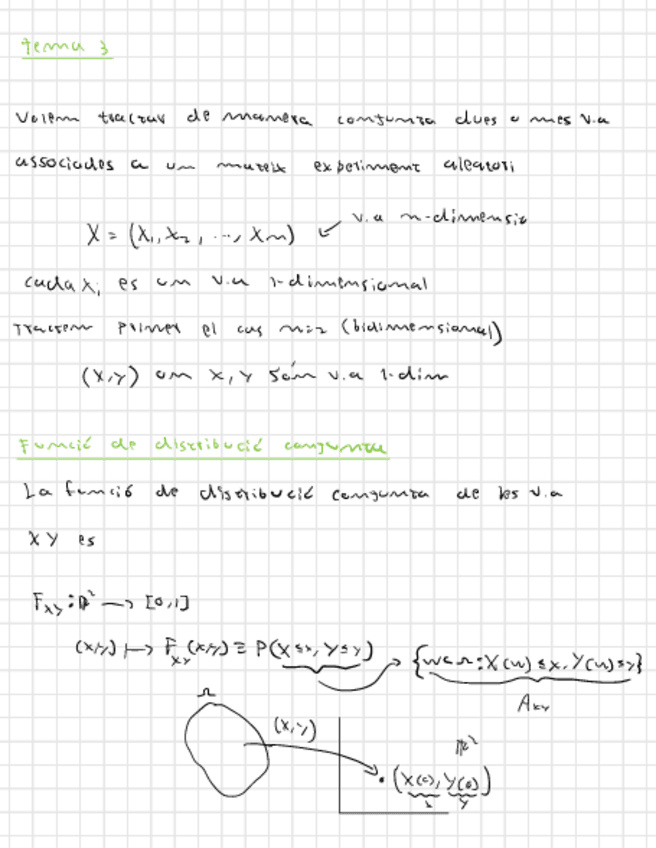 tema 3
Volem tractar de manera conjunta dues o mes v.a
associades a un mateix experiment aleatori
X = (X₁, X₂, ..., Xₙ) ↙ v.a n-dimensio
cada Xᵢ es un v.a 1-dimensional
Tractem primer el cas n=2 (bidimensional)
(X,Y) on X,Y són v.a 1-dim
Funció de distribució conjunta
La funció de distribució conjunta de les v.a
X Y es
F_XY : ℝ² → [0,1]
(x,y) ↦ F_XY(x,y) ≡ P(X≤x, Y≤y) → {ω∈Ω : X(ω)≤x, Y(ω)≤y}
A_xy
Ω
(X,Y)
ℝ²
(X(ω), Y(ω))
x y